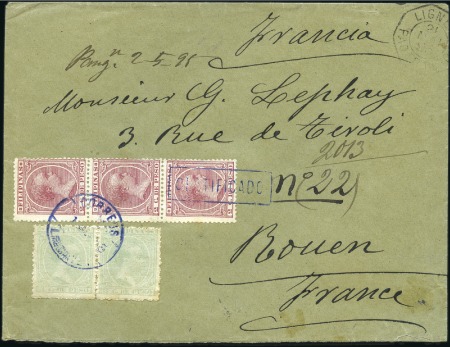 LIGN
Francia
2-5-95
Monsieur G. Lephay
3. Rue de Tivoli
2013
FILIPINAS FILIPINAS FILIPINAS
CERTIFICADO
nº 22
CORREOS
Rouen
France